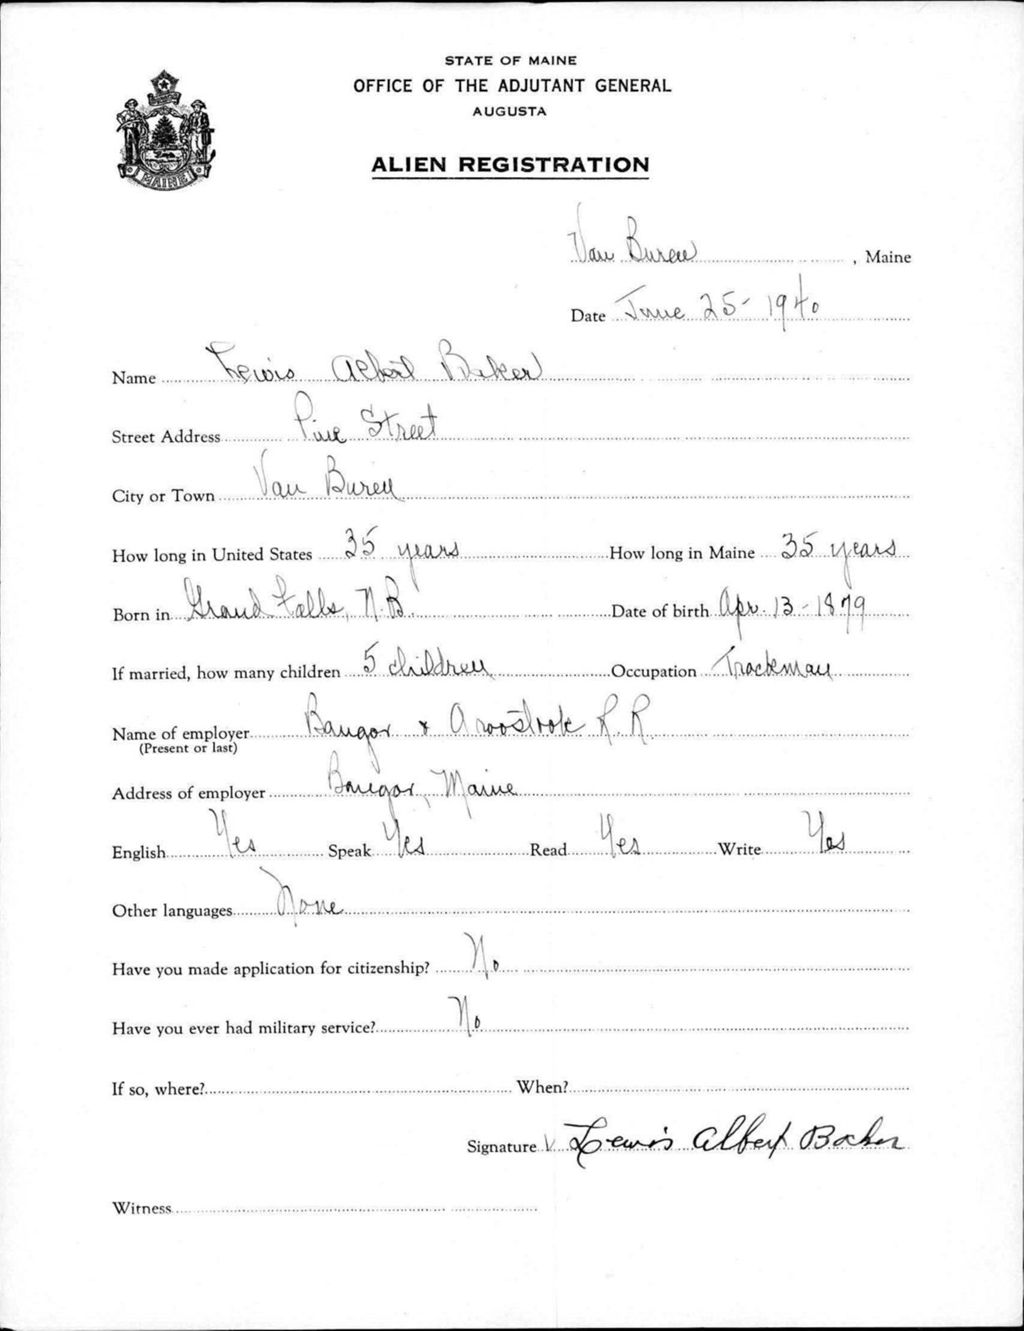 STATE OF MAINE
OFFICE OF THE ADJUTANT GENERAL
AUGUSTA
MAINE
ALIEN REGISTRATION
Van Buren, Maine
Date June 25- 1940
Name Lewis Albert Baker
Street Address Pine Street
City or Town Van Buren
How long in United States 35 years How long in Maine 35 years
Born in Grand Falls, N.B. Date of birth Apr. 13 - 1879
If married, how many children 5 children Occupation Trackman
Name of employer Bangor & Aroostook R.R.
(Present or last)
Address of employer Bangor, Maine
English Yes Speak Yes Read Yes Write Yes
Other languages None
Have you made application for citizenship? No
Have you ever had military service? No
If so, where? When?
Signature Lewis Albert Baker
Witness